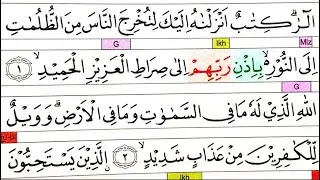 الٓرٰ ۚ كِتٰبٌ اَنْزَلْنٰهُ اِلَيْكَ لِتُخْرِجَ النَّاسَ مِنَ الظُّلُمٰتِ
G Ikh Mlz
اِلَى النُّوْرِ ەۙ بِاِذْنِ رَبِّهِمْ اِلٰى صِرَاطِ الْعَزِيْزِ الْحَمِيْدِۙ ١
G
اللّٰهِ الَّذِيْ لَهٗ مَا فِى السَّمٰوٰتِ وَمَا فِى الْاَرْضِۗ وَوَيْلٌ
لِّلْكٰفِرِيْنَ مِنْ عَذَابٍ شَدِيْدٍۙ ٢ ۨالَّذِيْنَ يَسْتَحِبُّوْنَ
Ikh G